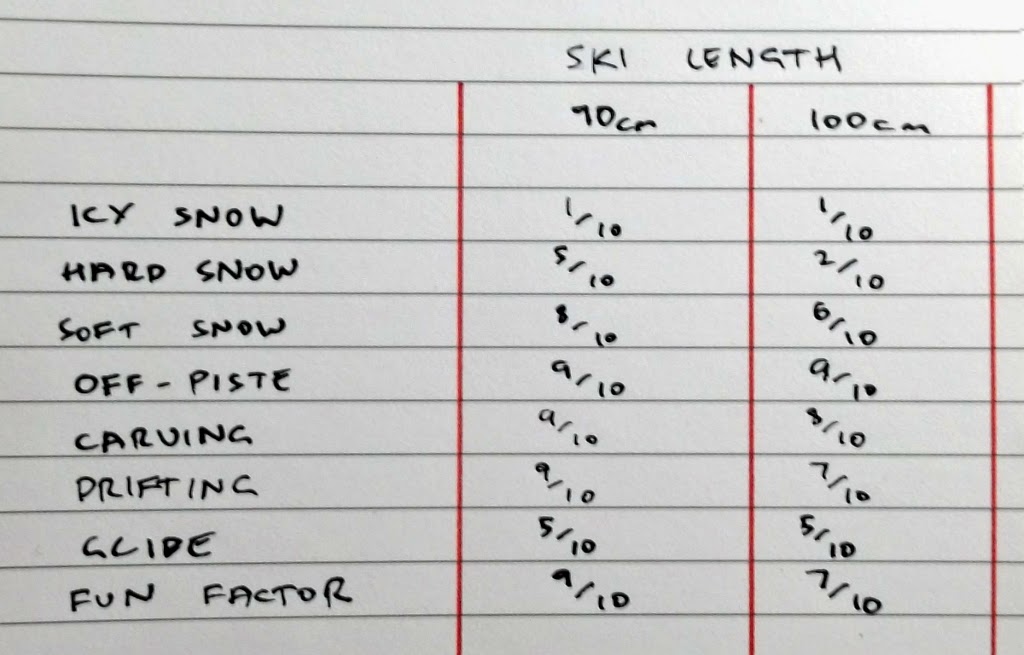 SKI LENGTH
90cm 100cm
ICY SNOW 1/10 1/10
HARD SNOW 5/10 2/10
SOFT SNOW 8/10 6/10
OFF-PISTE 9/10 9/10
CARVING 9/10 8/10
DRIFTING 9/10 7/10
GLIDE 5/10 5/10
FUN FACTOR 9/10 7/10